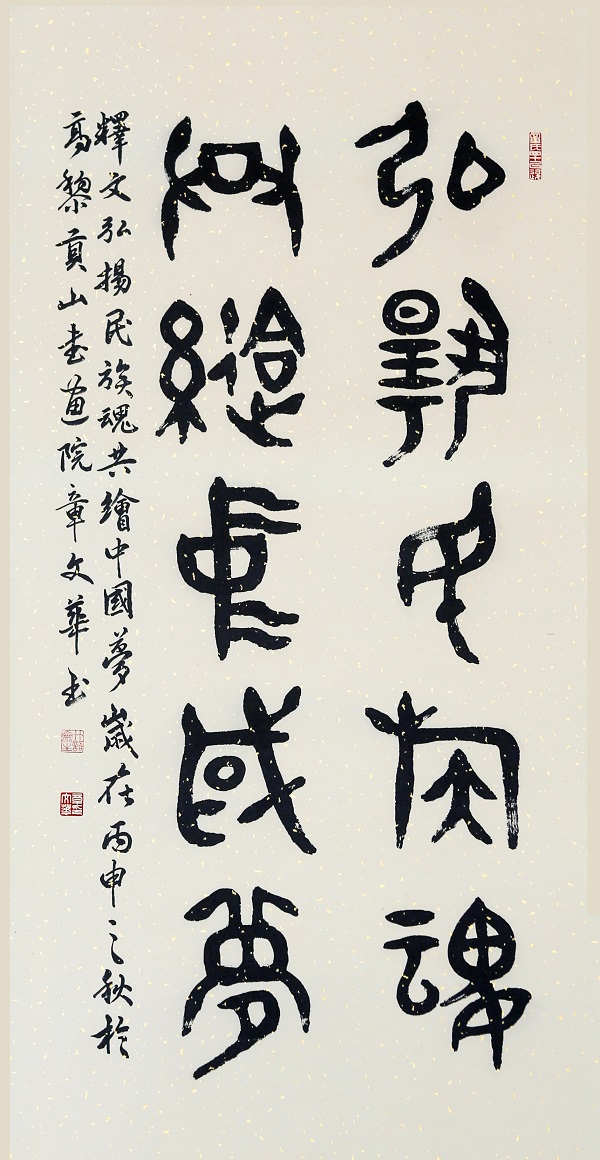 弘揚民族魂
共繪中國夢
釋文弘揚民族魂共繪中國夢歲在丙申之秋於
高黎貢山書畫院章文華書